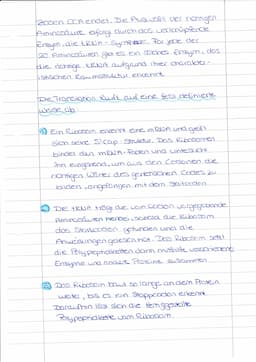 Zooen CCA endet. Die Auswahl der richtigen
Aminosäure erfolgt durch das verknüpfende
Enzym, die tRNA - Synthetase. Für jede der
20 Aminosäuren gibt es ein solches Enzym, das
die richtige tRNA aufgrund ihrer charakter-
istischen Raumstruktur erkennt.
Die Translation läuft auf eine fest definierte
Weise ab.
Ein Ribosom erkennt eine mRNA und greift
sich seine 5'Cap-Struktur. Das Ribosomen
bindet den mRNA-Faden und untersucht
ihn eingehend, um aus den Codonen die
richtigen Wörter des genetischen Codes zu
bilden, angefangen mit dem Startcodon.
Die tRNA trägt die vom Codon vorgegebene
Aminosäuren herbei, sobald die Ribosom
das Startcodon gefunden und die
Anweisungen gelesen hat. Das Ribosom setzt
die Polypeptidketten dann mithilfe verschiedener
Enzyme und anderer Proteine zusammen.
Das Ribosom baut so lange an dem Protein
weiter, bis es ein Stoppcodon erkennt.
Daraufhin löst sich die fertiggestellte
Polypeptidkette vom Ribosom.